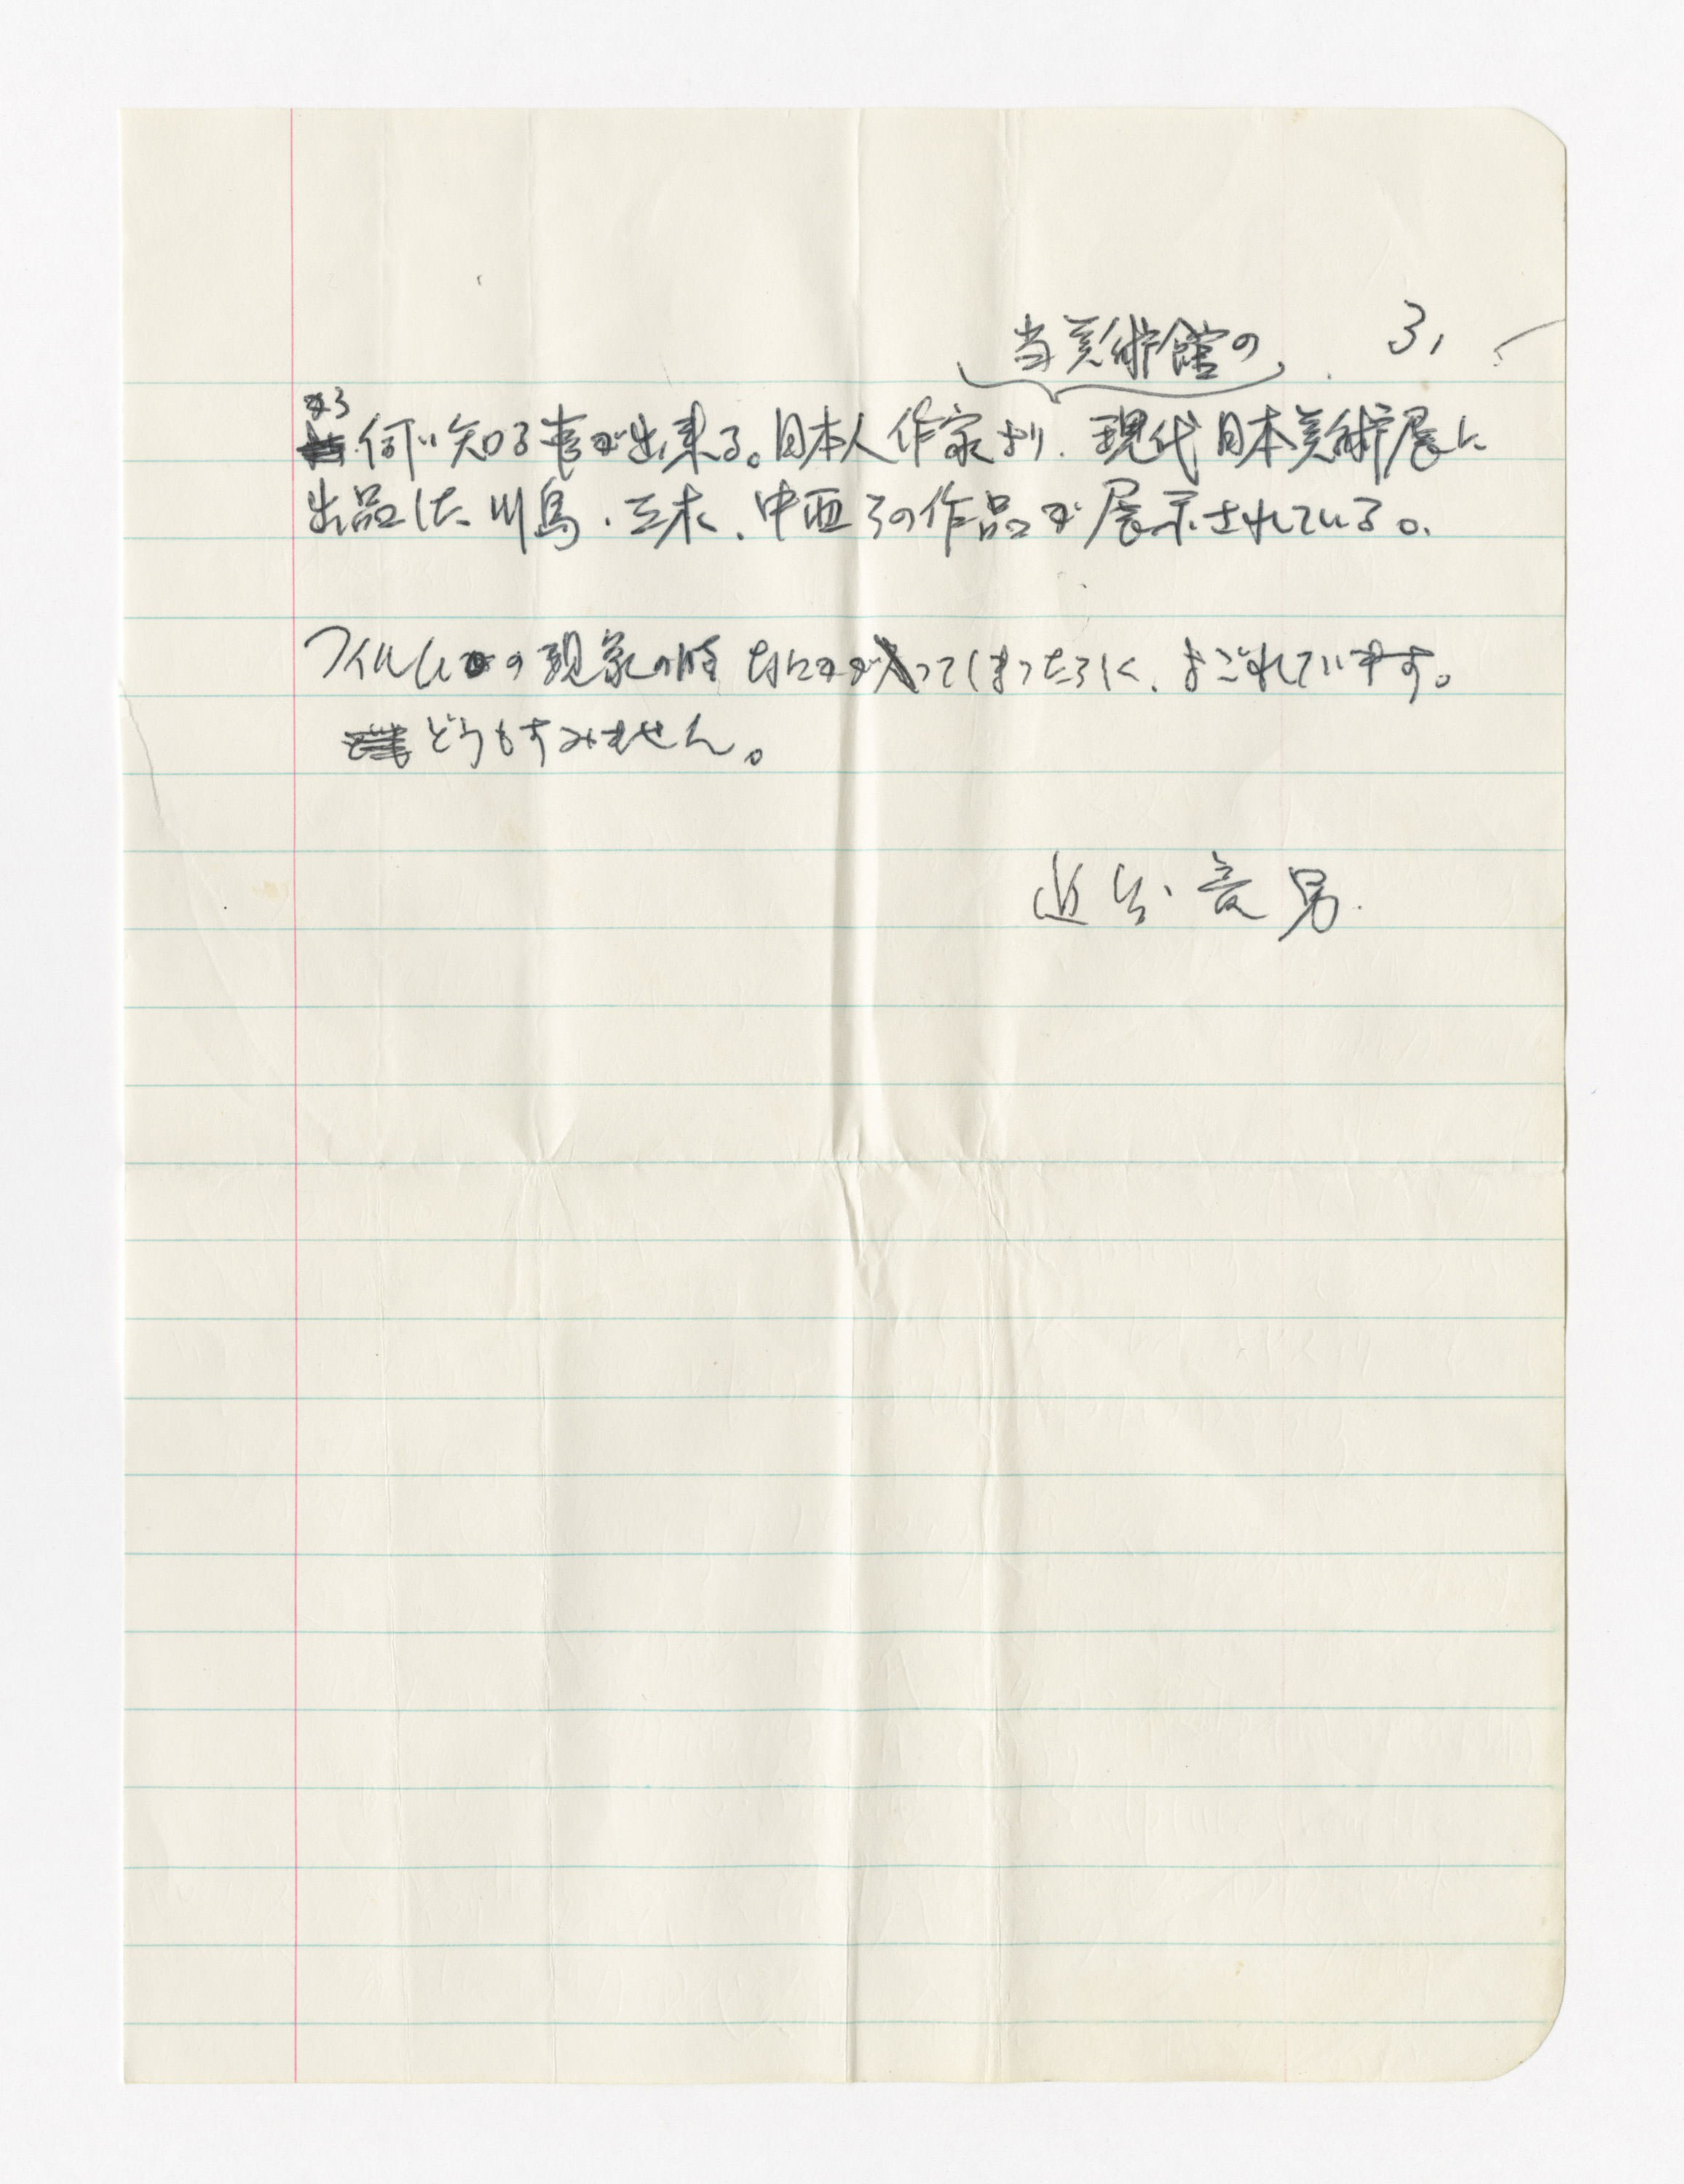 3,
当美術館の
から
何い知る事が出来る。日本人作家より、現代日本美術展に
出品した川島、三木、中西らの作品が展示されている。
フィルムの現象の時なにかが入ってしまったらしく、よごれています。
どうもすみません。
近 男.